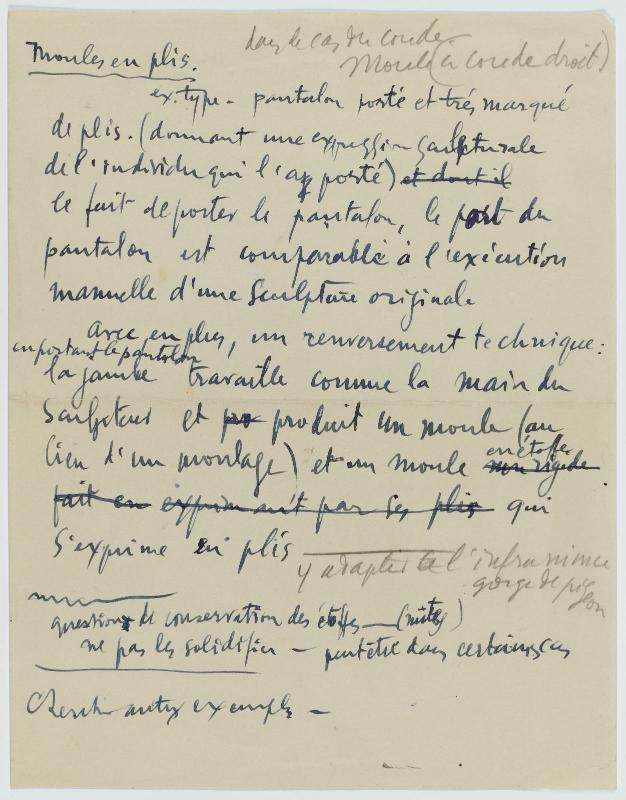 dans le cas du coude
Moule (à coude droit)
Moules en plis.
ex. type - pantalon porté et très marqué
de plis. (donnant une expression sculpturale
de l'individu qui l'a porté) et dont il
le fait de porter le pantalon, le port du
pantalon est comparable à l'exécution
manuelle d'une sculpture originale
Avec, en plus, un renversement technique :
en portant le pantalon
la jambe travaille comme la main du
sculpteur et pro produit un moule (au
lieu d'un moulage) et un moule
en étoffe
non rigide
fait en exprimant par ses plis qui
s'exprime en plis
y adapter l'infra mince
gorge de pigeon
questions de conservation des étoffes — (mites)
ne pas les solidifier — peut être dans certains cas
Chercher autres exemples —